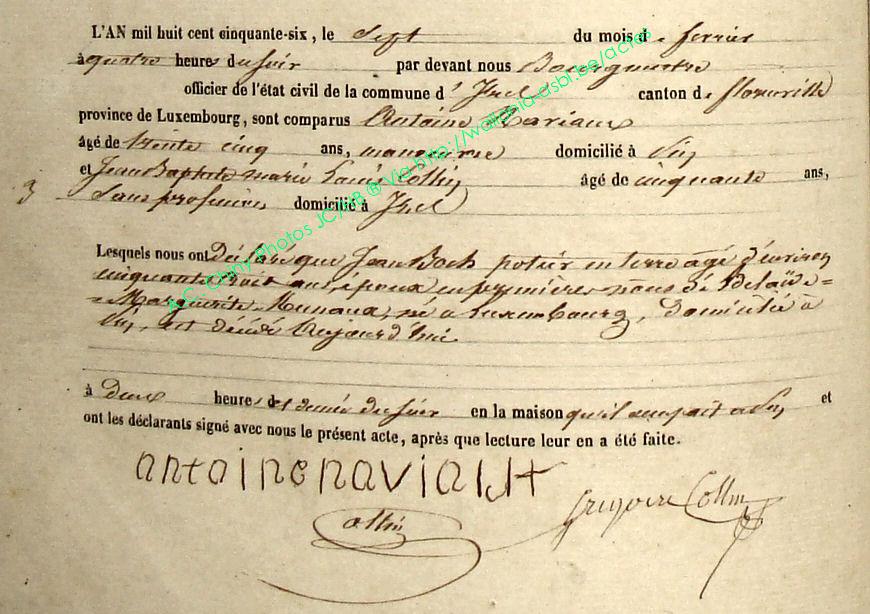 L'AN mil huit cent cinquante-six, le Sept du mois de ferrier
à quatre heures du soir par devant nous Bourgmestre
officier de l'état civil de la commune d' Izel canton de florenville
province de Luxembourg, sont comparus Antoine Naviaux
âgé de trente cinq ans, manoeuvre domicilié à
et Jean Baptiste marie Louis Collin âgé de cinquante ans,
3 Sans profession domicilié à Izel
Lesquels nous ont Déclaré que Jean Boch potier en terre agé d'environ
cinquante trois ans, époux en premières noces de Adelaïde=
=Marguerite né a Luxembourg, Domicilié à
est décédé Aujourd'hui
à Deux heures et demie du soir en la maison qu'il occupait a et
ont les déclarants signé avec nous le présent acte, après que lecture leur en a été faite.
antoine naviaux
Collin
Gregoire Collin
A.C. Chiny Photos JC/MB ® Via http://wallonia-asbl.be/actes